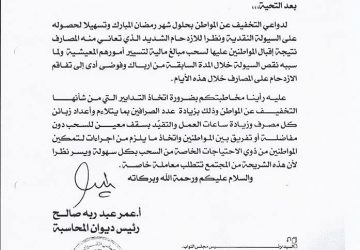 بعد التحية،،،
لدواعي التخفيف عن المواطن بحلول شهر رمضان المبارك وتسهيلا لحصوله
على السيولة النقدية ونظرا للازدحام الشديد الذي تعاني منه المصارف
نتيجة إقبال المواطنين عليها لسحب مبالغ مالية لتسيير أمورهم المعيشية وما
سببه نقص السيولة خلال المدة السابقة من ارباك وفوضى أدى إلى تفاقم
الازدحام على المصارف خلال هذه الأيام.
عليه رأينا مخاطبتكم بضرورة اتخاذ التدابير التي من شأنها
التخفيف عن المواطن وذلك بزيادة عدد الصرافين بما يتلاءم وأعداد زبائن
كل مصرف وزيادة ساعات العمل والتقيد بسقف معين للسحب دون
مفاضلة أو تفريق بين المواطنين واتخاذ ما يلزم من اجراءات لتمكين
المواطنين من ذوي الاحتياجات الخاصة من السحب بكل سهولة ويسر نظرا
لأن هذه الشريحة من المجتمع تتطلب معاملة خاصة.
والسلام عليكم ورحمة الله وبركاته
أ.عمر عبد ربه صالح
رئيس ديوان المحاسبة
مجلس النواب